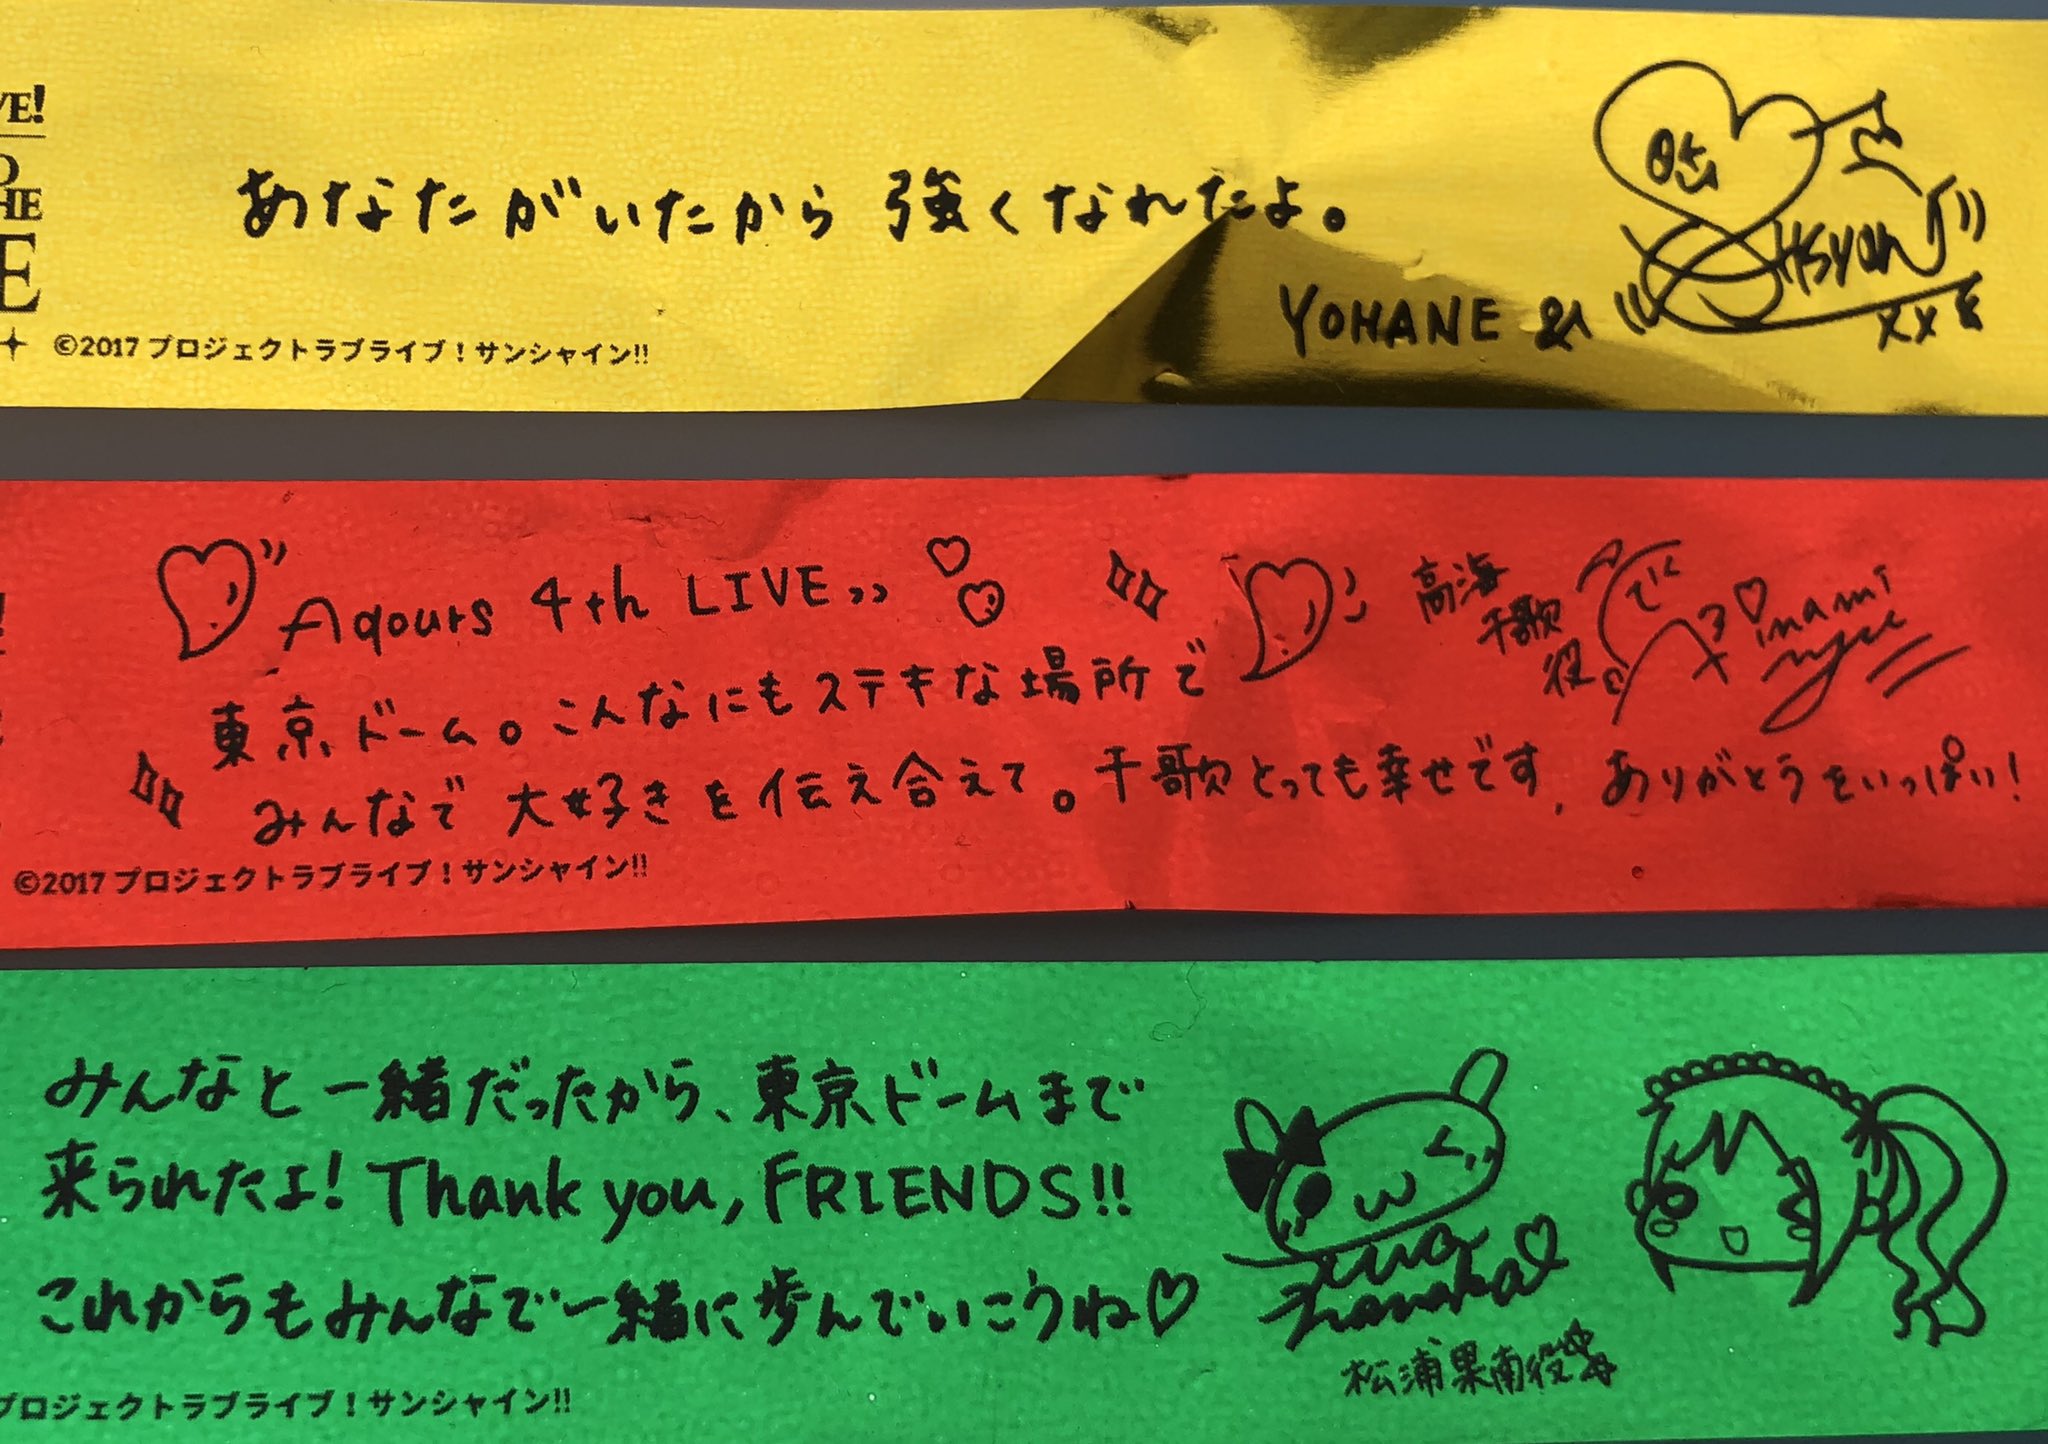 VE!
HE
E
あなたがいたから 強くなれたよ。
YOHANE &
©2017 プロジェクトラブライブ！サンシャイン!!
Aqours 4th LIVE
東京ドーム。こんなにもステキな場所で
みんなで 大好きを伝え合えて。千歌とっても幸せです. ありがとうをいっぱい!
高海
千歌
役
inami
©2017 プロジェクトラブライブ！サンシャイン!!
みんなと一緒だったから、東京ドームまで
来られたよ! Thank you, FRIENDS!!
これからもみんなで一緒に歩んでいこうね♡
松浦果南役
プロジェクトラブライブ！サンシャイン!!